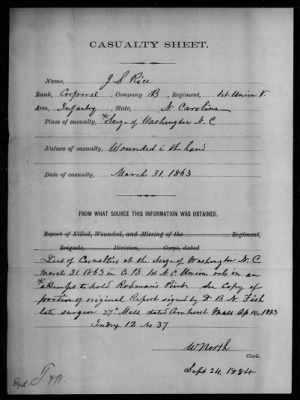 CASUALTY SHEET.
Name, J S Rice
Rank, Corporal Company B, Regiment, 1st Union V
Arm, Infantry, State, N Carolina
Place of casualty, Seige of Washington N.C
Nature of casualty, Wounded in the hand
Date of casualty, March 31. 1863
FROM WHAT SOURCE THIS INFORMATION WAS OBTAINED.
Report of Killed, Wounded, and Missing of the Regiment,
Brigade, Division, Corps, dated
List of Casualties at the Seige of Washington N. C
March 31 1863 in Co B 1st N.C Union vols in an
attempt to hold Rodman's Point. See Copy of
portion of original Report signed by D. B. N. Fish
late surgeon 27" Mass dated Amherst Mass Ap 10, 1863
Index 12 No 37
W North
Clerk.
Sept 24, 1884